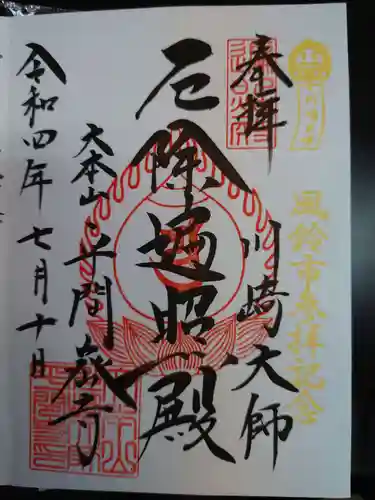 風鈴市参拝記念
奉拝
川崎大師
厄除遍照殿
大本山 平間寺
令和四年七月十日